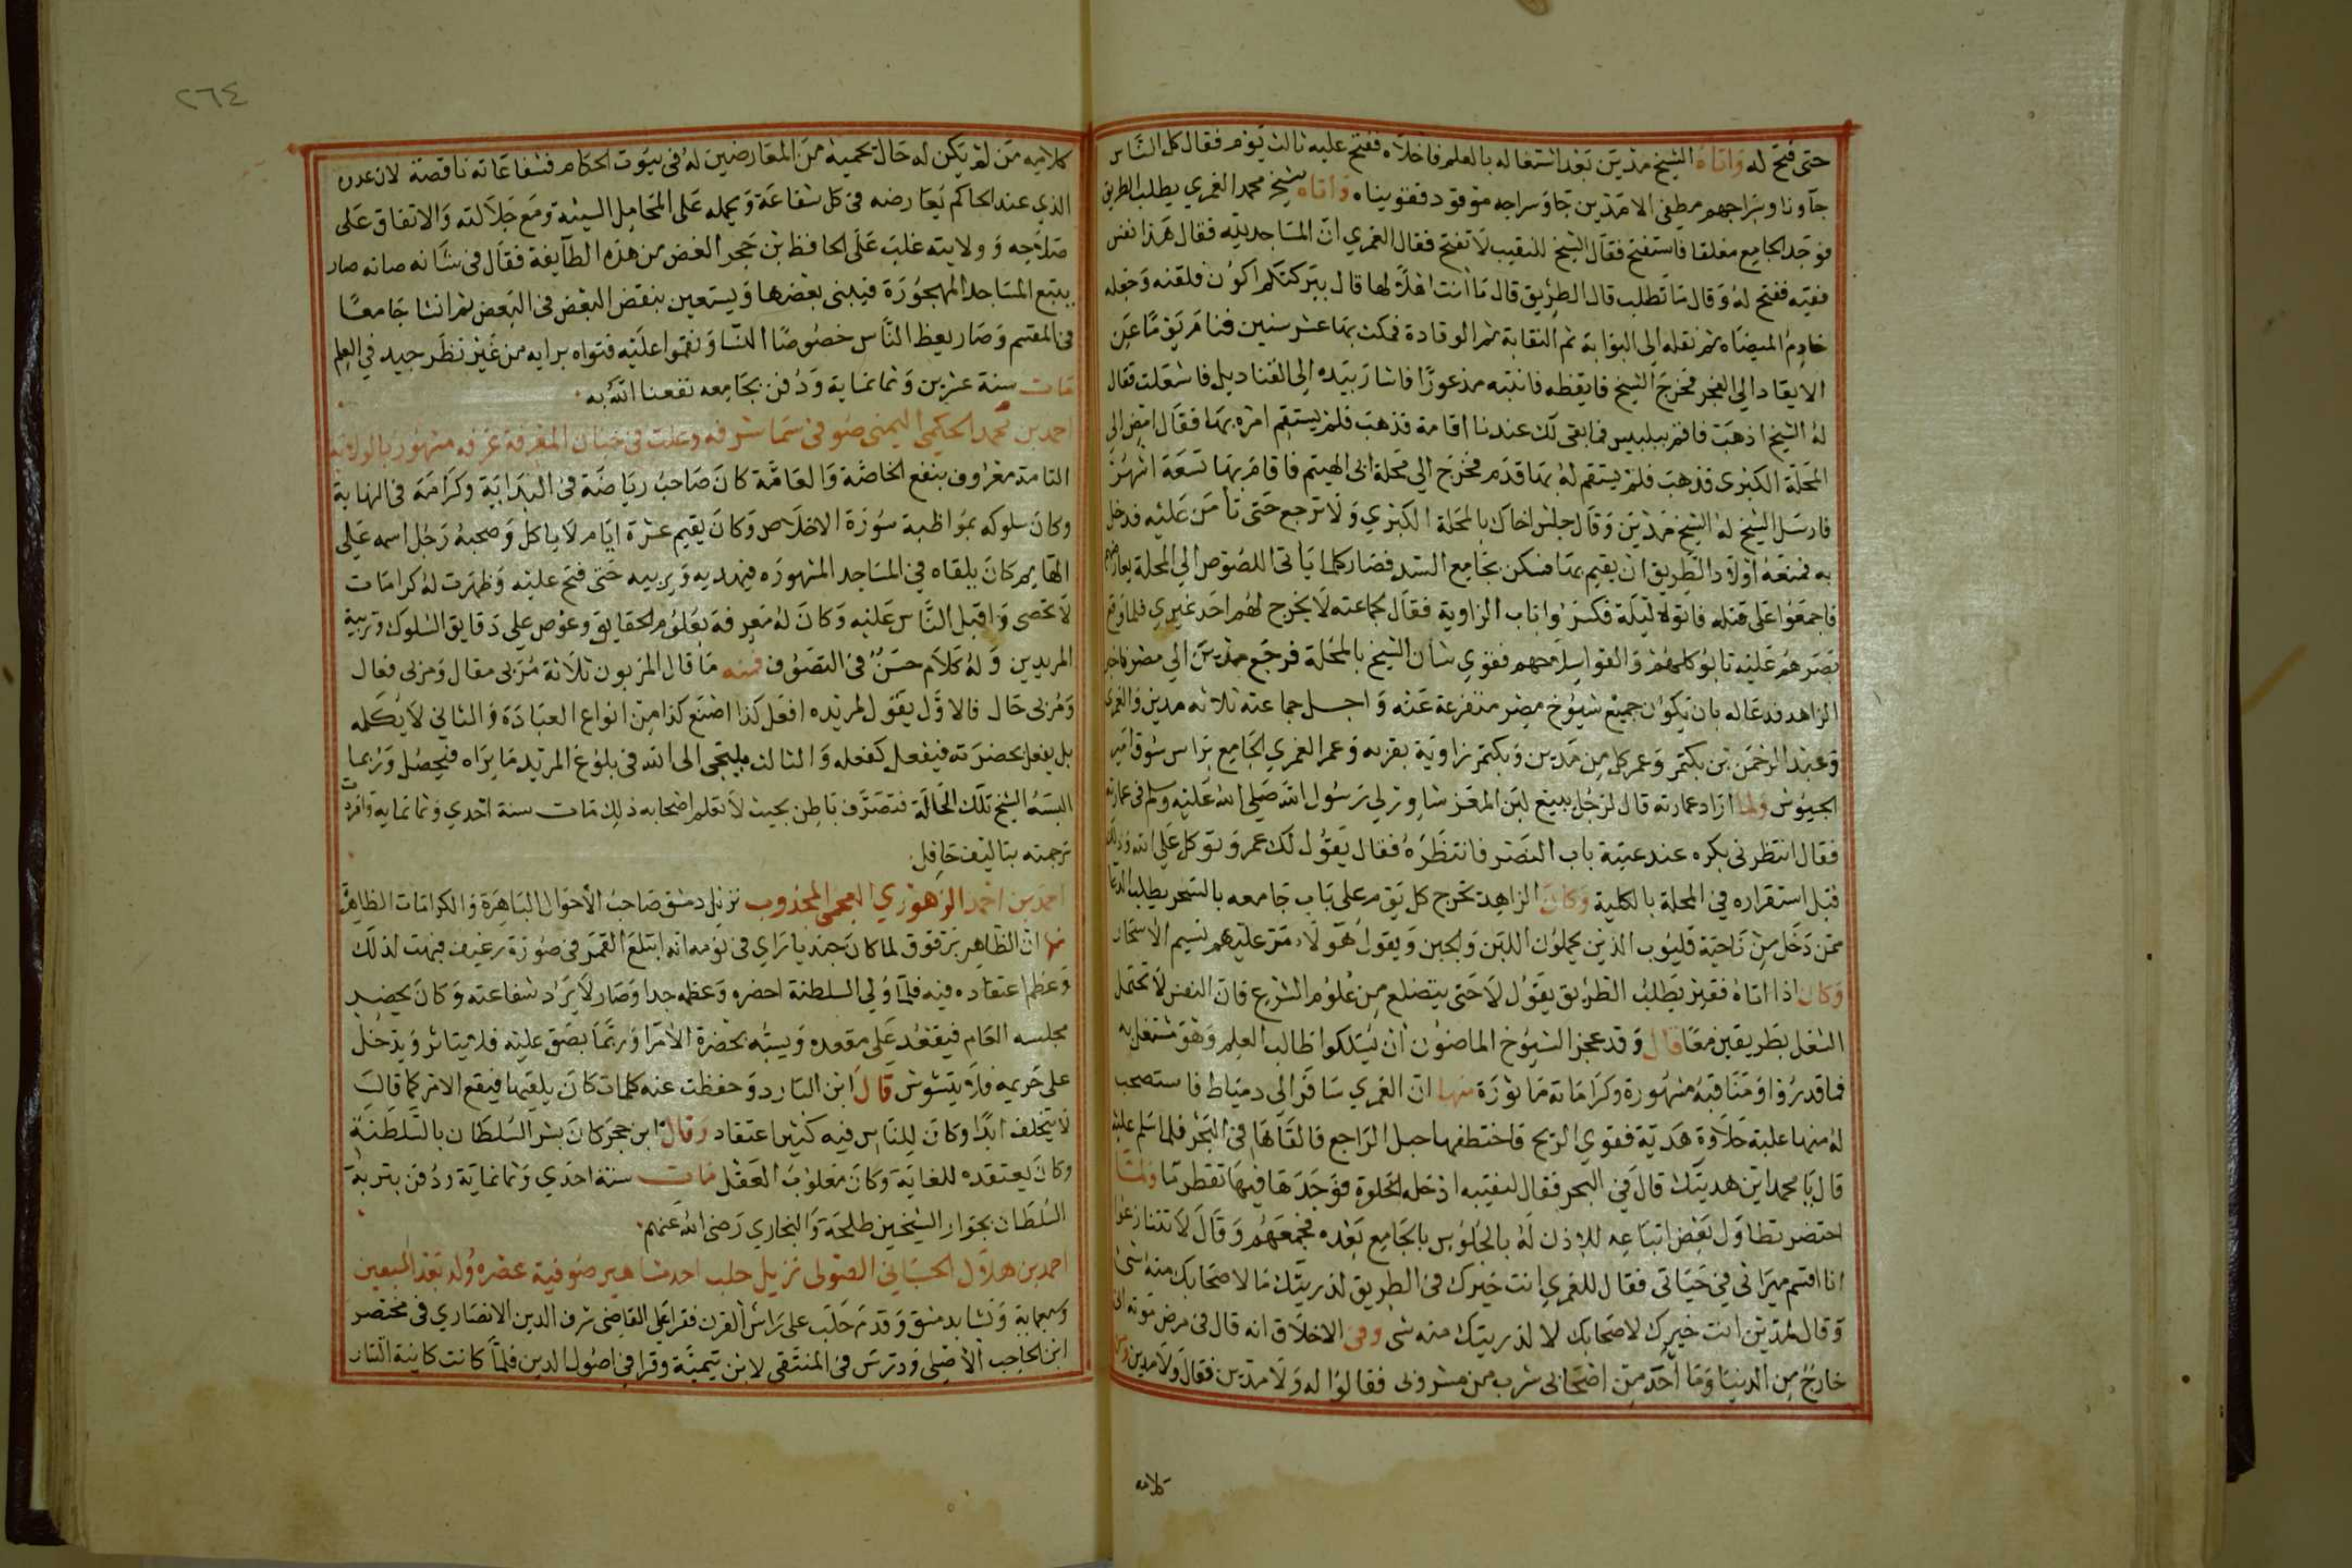 حتى فتح له واتاه الشيخ مدين بعد اشتغاله بالعلم فاخلاه ففتح عليه ثالث يوم فقال كل الناس
جآونا وسراجهم مطفى الا مدين جا وسراجه موقود فقويناه واتاه شيخ محمد الغمري يطلب الطريق
فوجد الجامع مغلقا فاستفتح فقال الشيخ للنقيب لا تفتح فقال الغمري ان المساجد لله فقال هذا نفس
فقيه ففتح له وقال ما تطلب قال الطريق قال ما انت اهلا لها قال ببركتكم اكون فلقنه وجعله
خادم الميضاه ثم نقله الى البوابة ثم النقابة ثم الوقادة فمكث بها عشر سنين فنام يوما عن
الايقاد الي الفجر فخرج الشيخ فايقظه فانتبه مذعورا فاشار بيده الى القناديل فاشعلت فقال
له الشيخ اذهب فاقم ببلبيس فما بقى لك عندنا اقامة فذهب فلم يستقم امره بها فقال امض الى
المحلة الكبرى فذهب فلم يستقم له بها قدم فخرج الي محلة ابى الهيتم فاقام بها تسعة اشهر
فارسل الشيخ له الشيخ مدين وقال جلس اخاك بالمحلة الكبري ولا ترجع حتى تأمن عليه فدخل
به فمنعه اولاد الطريق ان يقيم بها فسكن بجامع السد فصار كلما ياتى اللصوص الي المحلة يعارضهم
فاجمعوا على قتله فاتوه ليلة فكسروا باب الزاوية فقال لجماعته لا يخرج لهم احد غيري فلما وقع
بصرهم عليه تابوا كلهم والقوا سلاحهم فقوي شأن الشيخ بالمحلة فرجع مدين الي مصر فاخبر
الزاهد فدعا له بان يكون جميع شيوخ مصر متفرعة عنه واجل جماعته ثلاثه مدين والغمري
وعبد الرحمن بن بكتمر وعمر كل من مدين وبكتمر زاوية بقربه وعمر الغمري الجامع براس سوق امير
الجيوش ولما اراد عمارته قال لرجل يبيع لبن المعز شاور لي رسول الله صلى الله عليه وسلم فى عمارته
فقال انتظرنى بكره عند عتبة باب النصر فانتظره فقال يقول لك عمر وتوكل على الله وذلك
قبل استقراره في المحلة بالكلية وكان الزاهد يخرج كل يوم على باب جامعه بالسحر يطلب الدعا
ممن دخل من ناحية قليوب الذين يحملون اللبن والجبن ويقول هولاء مر عليهم نسيم الاسحار
وكان اذا اتاه فقير يطلب الطريق يقول لا حتى يتضلع من علوم الشرع فان النفس لا تحتمل
الشغل بطريقين معا قال وقد عجز الشيوخ الماضون ان يسلكوا طالب العلم وهو مشتغل به
فما قدروا ومناقبه مشهورة وكراماته ماثورة منها ان الغمري سافر الى دمياط فاستصحب
له منها علبة حلاوة هدية فقوي الريح فاختطفها حبل الراجع فالقاها فى البحر فلما سلم عليه
قال يا محمد اين هديتك قال في البحر فقال لنقيبه ادخله الخلوة فوجدها فيها تقطر ما ولما
احتضر تطاول بعض اتباعه للاذن له بالجلوس بالجامع بعده فجمعهم وقال لا تتنازعوا
انا اقسم ميراثى في حياتى فقال للغمري انت خيرك فى الطريق لذريتك ما لاصحابك منه شى
وقال لمدين انت خيرك لاصحابك لا لذريتك منه شى وفى الاخلاق انه قال فى مرض موته انى
خارج من الدنيا وما احد من اصحابى شرب من مشروبى فقالوا له ولا مدين فقال ولا مدين ومن
كلامه
٢٦٤
كلامه من لم يكن له حال يحميه من المعارضين له فى بيوت الحكام فشفاعاته ناقصة لان عدوه
الذي عند الحاكم يعارضه فى كل شفاعة ويحمله على المحامل السيئة ومع جلالته والاتفاق على
صلاحه وولايته غلب على الحافظ بن حجر الغض من هذه الطآيفة فقال فى شانه صانه صار
يتتبع المساجد المهجورة فيبنى بعضها ويستعين بنقض البعض فى البعض ثم انشا جامعا
فى المقسم وصار يعظ الناس خصوصا النسا ونقموا عليه فتواه برايه من غير نظر جيد في العلم
مات سنة عشرين وثمانماية ودفن بجامعه نفعنا الله به
احمد بن محمد الحكمي اليمنى صوفى سما شرفه وعلت فى جنان المعرفة غرفه مشهور بالولاية
التامة معروف بنفع الخاصة والعامة كان صاحب رياضة فى البداية وكرامة فى النهاية
وكان سلوكه بمواظبة سورة الاخلاص وكان يقيم عشرة ايام لا ياكل وصحبه رجل اسمه على
الهايم كان يلقاه في المساجد المشهوره فيهديه ويربيه حتى فتح عليه وظهرت له كرامات
لا تحصى واقبل الناس عليه وكان له معرفة بعلوم الحقايق وغوص علي دقايق السلوك وتربية
المريدين وله كلام حسن فى التصوف فمنه ما قال المربون ثلاثة مربى مقال ومربى فعال
ومربى حال فالاول يقول لمريده افعل كذا اصنع كذا من انواع العبادة والثاني لا يكله
بل يفعل بحضرته فيفعل كفعله والثالث يلتجى الى الله فى بلوغ المريد ما يراه فيحصل وربما
البسه الشيخ تلك الحالة فتصرف باطن بحيث لا تعلم اصحابه ذلك مات سنة احدي وثمانماية وافردت
ترجمته بتاليف حافل
احمد بن احمد الزهوري العجمى المجذوب نزيل دمشق صاحب الاحوال الباهرة والكرامات الظاهرة
منها ان الظاهر برقوق لما كان جنديا راي فى نومه انه ابتلع القمر فى صورة رغيف فبهت لذلك
وعظم اعتقاده فيه فلما ولي السلطنة احضره وعظمه جدا وصار لا يرد شفاعته وكان يحضر
مجلسه العام فيقعد على مقعده ويسبه بحضرة الامرا وربما بصق عليه فلا يتاثر ويدخل
على حريمه فلا يتشوش قال ابن البارد وحفظت عنه كلمات كان يلقيها فيقع الامر كما قال
لا يتخلف ابدا وكان للناس فيه كثير اعتقاد وقال ابن حجر كان بشر السلطان بالسلطنة
وكان يعتقده للغاية وكان مغلوب العقل مات سنة احدي وثمانماية ودفن بتربة
السلطان بجوار الشيخين طلحة والبخاري رضى الله عنهم
احمد بن هلال الحسباني الصوفى نزيل حلب احد مشاهير صوفية عصره ولد بعد السبعين
وسبعماية ونشا بدمشق وقدم حلب على راس القرن فقرا على القاضى شرف الدين الانصاري فى مختصر
ابن الحاجب الاصلى ودرس فى المنتقى لابن تيمية وقرا فى اصول الدين فلما كانت كاينة التتار